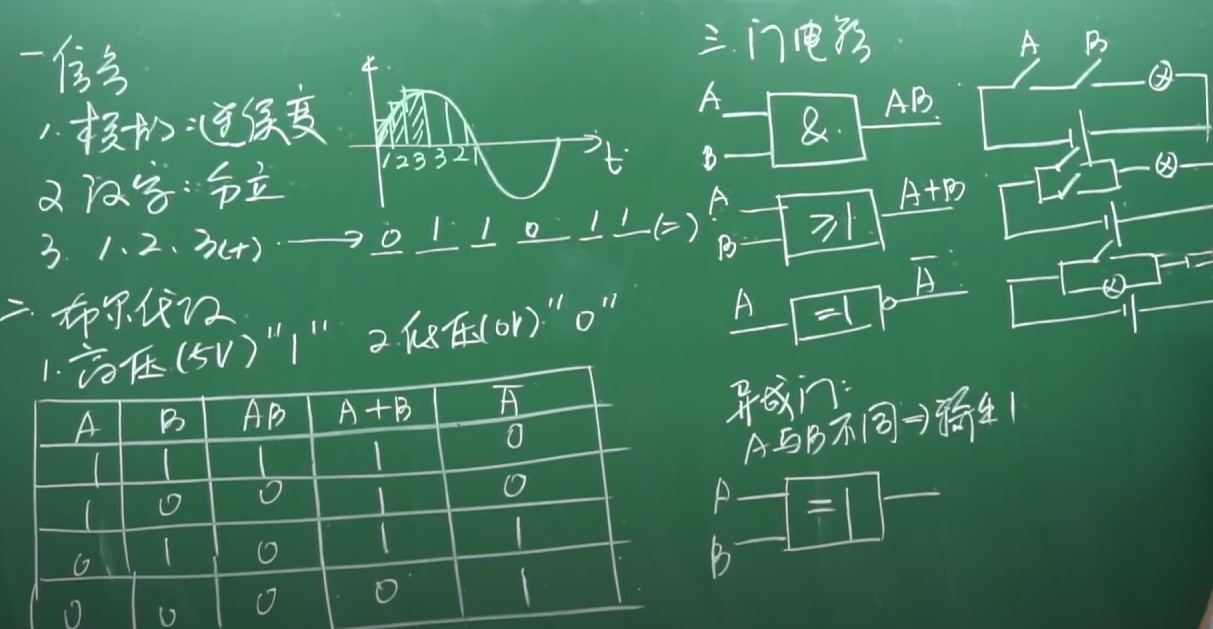 一 信号
1. 模拟:连续变
2 数字:分立
3. 1、2、3(十) → 0 1 1 0 1 1 (二)
1 2 3 3 2 1 t
二 布尔代数
1. 高压(5V)"1" 2. 低压(0V)"0"
A B AB A+B A̅
1 1 1 1 0
1 0 0 1 0
0 1 0 1 1
0 0 0 0 1
三.门电路
A B & AB
A B ≥1 A+B
A =1 A̅
A B
异或门:
A与B不同⇒输出1
A B =1